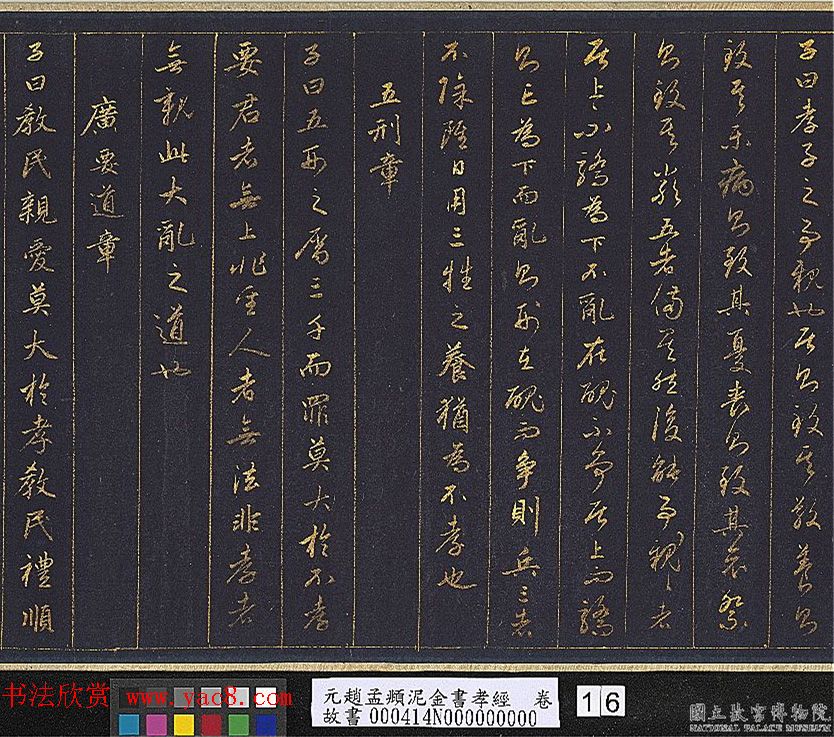 子曰孝子之事親也居則致其敬養則
致其樂病則致其憂喪則致其哀祭
則致其嚴五者備矣然後能事親〻者
居上不驕為下不亂在醜不爭居上而驕
則亡為下而亂則刑在醜而爭則兵三者
不除雖日用三牲之養猶為不孝也
五刑章
子曰五刑之屬三千而罪莫大於不孝
要君者無上非聖人者無法非孝者
無親此大亂之道也
廣要道章
子曰教民親愛莫大於孝教民禮順
书法欣赏 www.yac8.com
元趙孟頫泥金書孝經 卷
故書 000414N000000000
16
國立故宮博物院
NATIONAL PALACE MUSEUM